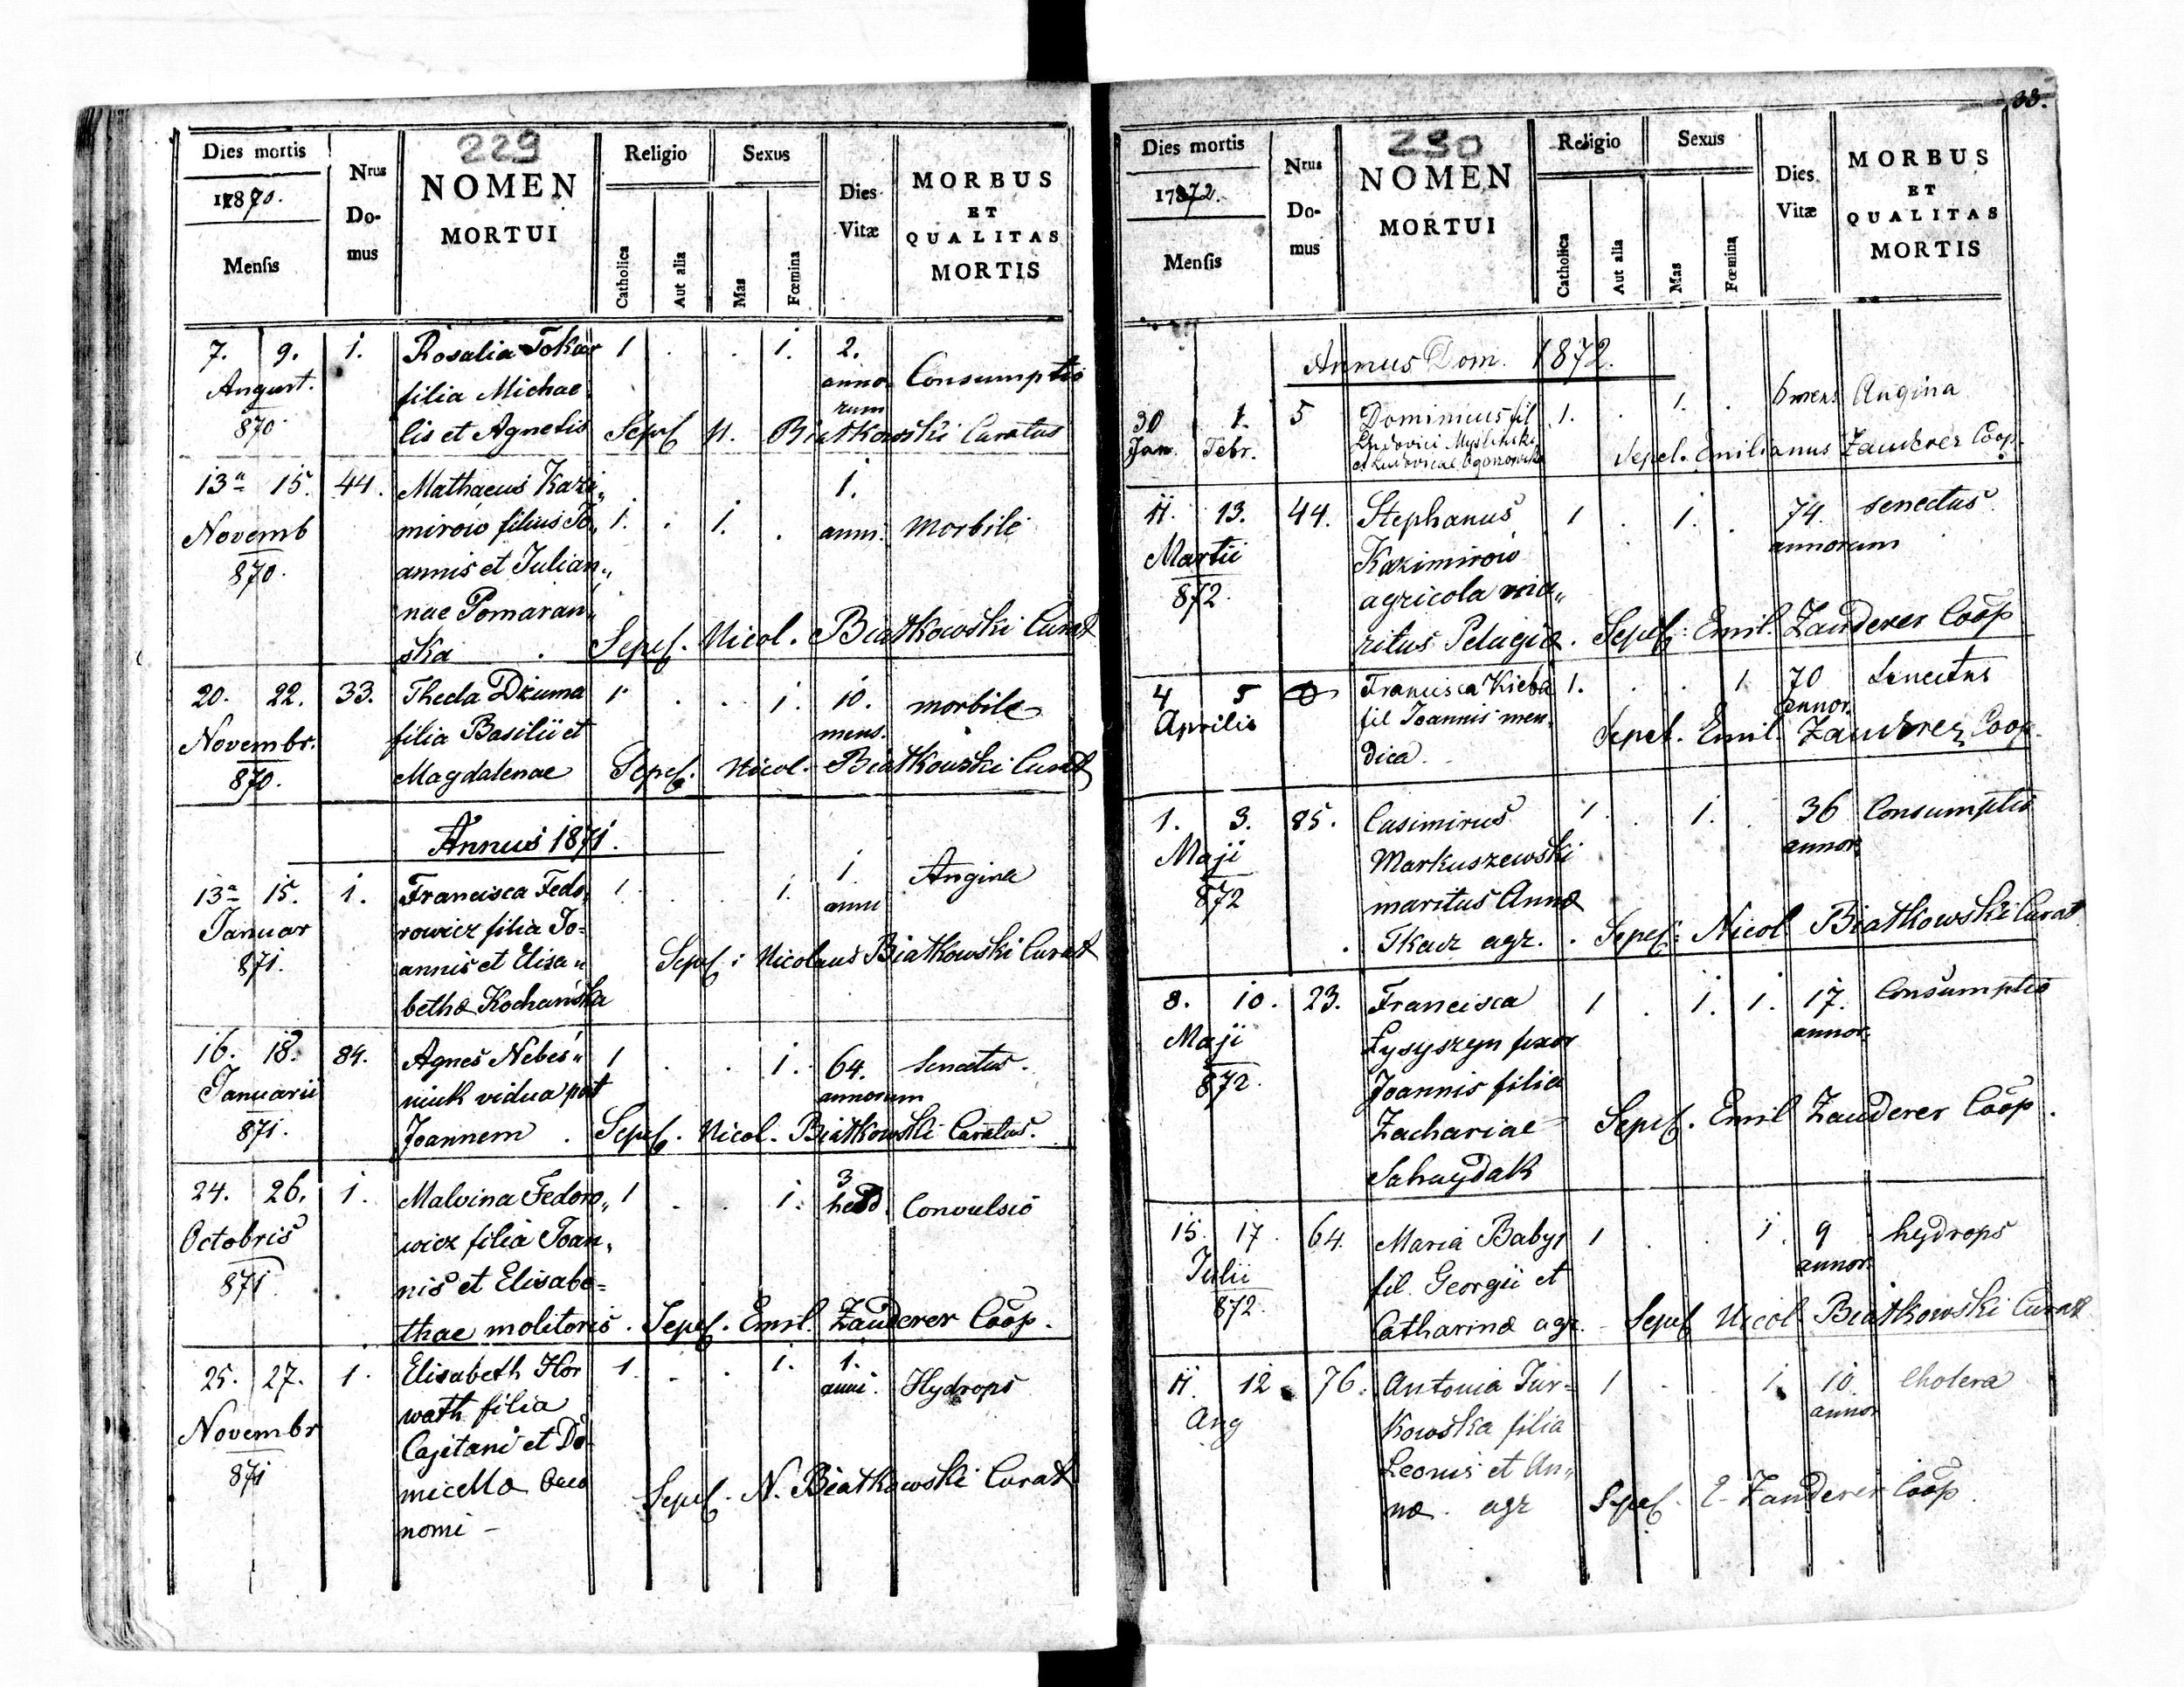 229
Dies mortis
1870.
Mensis
Nrus Domus
NOMEN
MORTUI
Religio
Catholica
Aut alia
Sexus
Mas
Fœmina
Dies Vitæ
MORBUS
ET
QUALITAS
MORTIS
7. 9. 1. Rosalia Tokar 1 . . 1. 2.
August. filia Michae anno Consumptio
870 rum
lis et Agnetis Sepel N. Białkowski Curatus
13a 15. 44. Mathaeus Kazi„ 1.
Novemb mirow filius Jo„ 1. . 1. . anni. Morbile
870. annis et Julian„
nae Pomaran„
ska . Sepel. Nicol. Białkowski Curat
20. 22. 33. Thecla Dżuma 1. . . 1. 10. morbile
Novembr. filia Basilii et mens.
870. Magdalenae Sepel. Nicol. Białkowski Curat
Annus 1871.
13a 15. 1. Francisca Fedo, 1. . . 1. 1 Angina
Januar rowicz filia Jo= anni
871. annis et Elisa„ Sepel: Nicolaus Białkowski Curat
bethæ Kochańska
16. 18. 84. Agnes Nebeś„ 1 . . 1. 64. Senectus.
Januarii niuk vidua post annorum
871. Joannem . Sepel. Nicol. Białkowski Curatus.
24. 26. 1. Malvina Fedoro„ 1 . . 1. 3 hebd. Convulsio
Octobris wicz filia Joan„
871. nis et Elisabe=
thae molitoris . Sepel. Emil. Zauderer Coop.
25. 27. 1. Elisabeth Hor 1. . . 1. 1. Hydrops
Novembr wath filia anni.
871 Cajetani et Do
micellæ Oeco Sepel. N. Białkowski Curat
nomi –
33.
230
Dies mortis
17872.
Mensis
Nrus Domus
NOMEN
MORTUI
Religio
Catholica
Aut alia
Sexus
Mas
Fœmina
Dies Vitæ
MORBUS
ET
QUALITAS
MORTIS
Annus Dom. 1872.
30 1. 5 Dominicus fil 1. . 1. . 6 mens Angina
Jan. Febr. Ludovici
et Ludovicae Sepel. Emilianus Zauderer Coop.
11. 13. 44. Stephanus 1 . 1. . 74. senectus
Martii Kazimirow annorum
872. agricola ma„
ritus Pelagiæ . Sepel: Emil. Zauderer Coop
4 5 Francisca Kieba 1. . . 1 70 Senectus
Aprilis fil Joannis men. annor.
dica. Sepel. Emil. Zauderer Coop.
1. 3. 85. Casimirus 1 . 1. . 36 Consumptio
Maji Markuszewski annor.
872 maritus Annæ
Tkacz agr. . Sepel: Nicol Białkowski Curat
8. 10. 23. Francisca 1 . 1. 1. 17. Consumptio
Maji Łysyszyn uxor annor.
872. Joannis filia
Zachariae Sepel. Emil Zauderer Coop.
Sahaydak
15. 17. 64. Maria Babyi 1 . . 1. 9 hydrops
Julii fil. Georgii et annor.
872. Catharinæ agr. – Sepel Nicol Białkowski Curat
11. 12. 76. Antonia Jur= 1 . . 1. 10. Cholera
Aug kowska filia annor
Leonis et An„
næ. agr Sepel. E. Zauderer Coop.